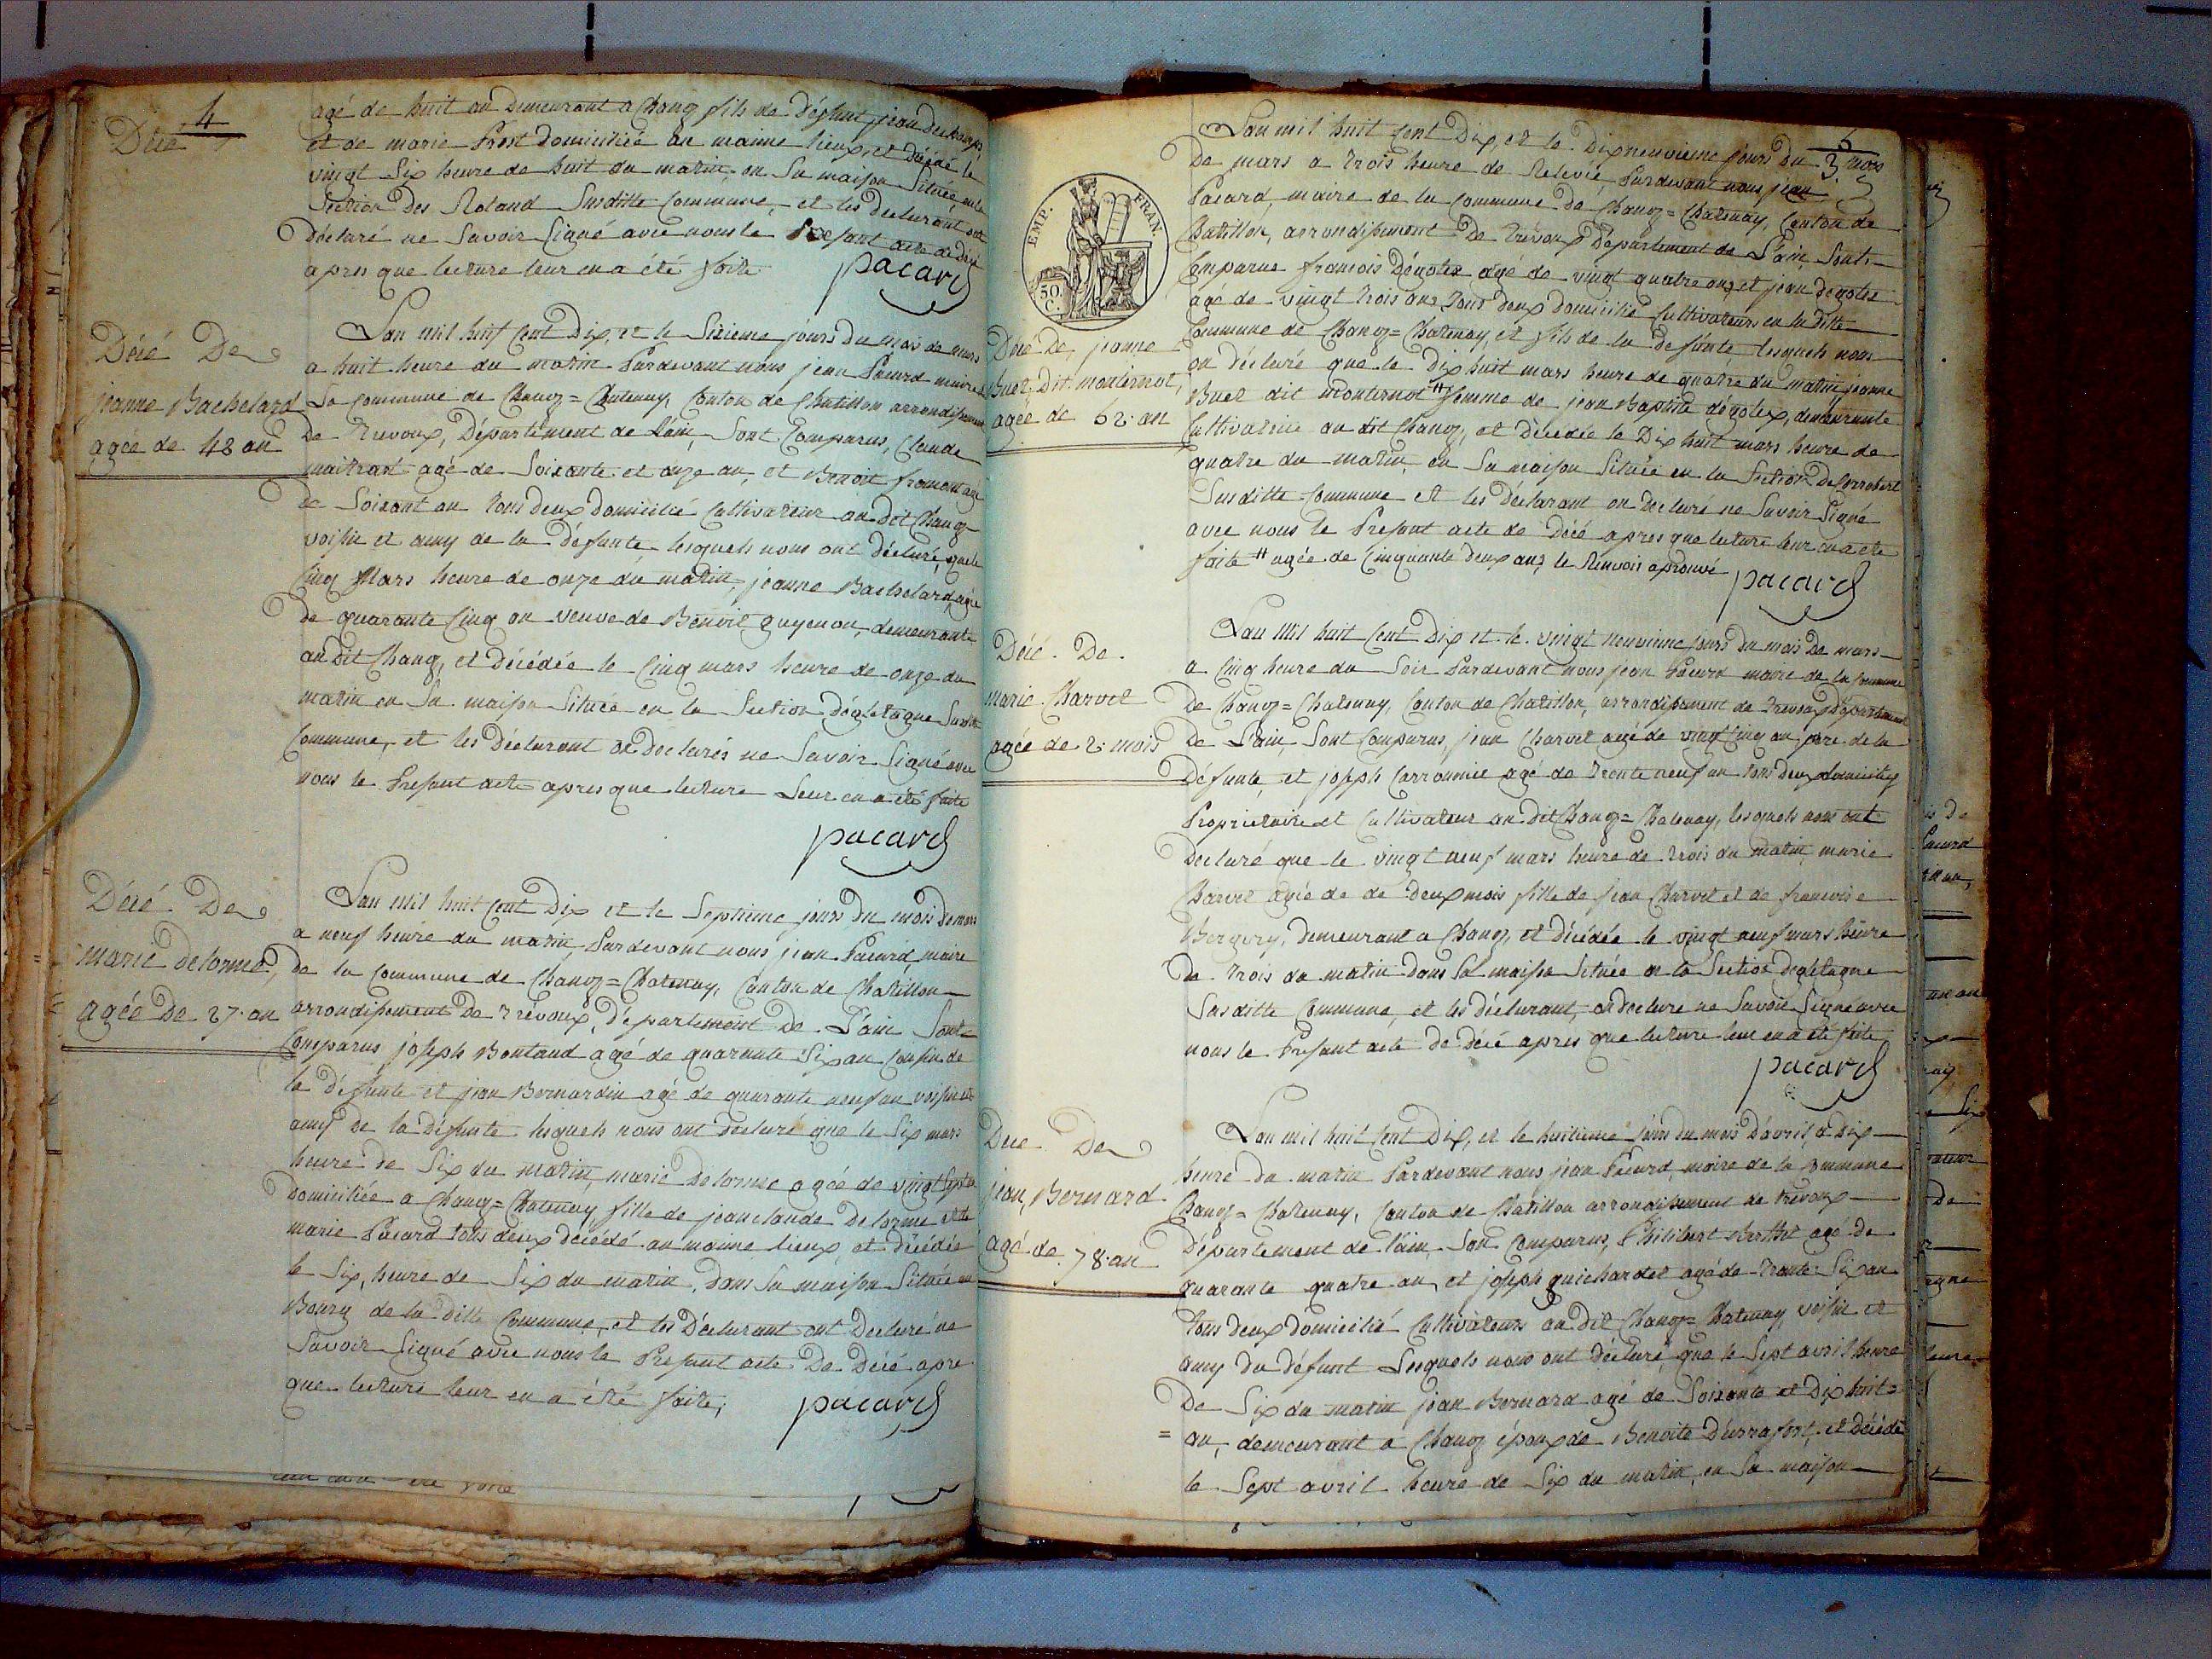 4
Décé
agé de huit an Demeurant a Chanoz fils de Défunt jean
et de marie Prost domiciliée au maime lieux, et décédé le
vingt Six heure de huit du matin en Sa maison Située en la
Section des Roland Susditte Commune, et les declarant ont
déclaré ne Savoir Signé avec nous le Présant acte de décé
apres que lecture leur en a été faite
pacard
Décé De
jeanne Bachelard
agée de 48 an
Lan mil huit Cent Dix, et le Sixieme jours du mois de mars
a huit heure du matin Pardevant nous jean Pacard maire de
La Commune de Chanoz = Chatenay, Canton de Chatillon arrondisement
De Trevoux, Département de Lain, Sont Comparus, Claude
maitrat agé de Soixante et onze an, et Benoit fromont agé
de Soixant an tous deux domicilié Cultivateur au dit Chanoz
voisin et amy de la Défunte lesquels nous ont déclaré, que le
Cinq Mars heure de onze du matin, jeanne Bachelard, agée
de quarante Cinq an veuve de Benoit guyenon, demeurante
au Dit Chanoz, et décédée le Cinq mars heure de onze du
matin en Sa maison Située en la Section dégletagne Susditte
Commune, et les Déclarant on declarés ne Savoir Signé avec
nous le Présant acte apres que lecture Leur en a été faite
pacard
Décé De
marie delorme,
agée De 27 an
Lan mil huit Cent Dix et le Septieme jours du mois de mars
a neuf heure du matin, Pardevant nous jean Pacard, maire
de la Commune de Chanoz = Chatenay, Canton de Chatillon
arrondisement De Trevoux, département De L'ain Sont
Comparus joseph Bontaud agé de quarante Six an Cousin de
la défunte et jean Bernardin agé de quarante neuf an voisin et
amy de la défunte lesquels nous ont declaré que le Six mars
heure de Six du matin, marie Delorme agée de vingt Sept an
domiciliée a Chanoz = Chatenay fille de jean claude Delorme et de
marie Pacard tous deux décédé au maime lieux, et décédée
le Six, heure de Six du matin, Dans Sa maison Située au
Bourg de la ditte Commune, et les Déclarant ont Declaré ne
Savoir Signé avec nous le Présant acte De Décé apre
que lecture leur en a été faite,
pacard
6
EMP. FRAN.
50 C.
Décé De jeanne
Buet Dit monternot,
agée de 62 an
Lan mil huit Cent Dix, et le Dixneuvieme jours du mois
De mars a trois heure de Relevée Pardevant nous jean
Pacard, maire de la Commune de Chanoz = Chatenay, Canton de
Chatillon, arrondisement De Trévoux Département de L'ain Sont
Comparus françois Dégotex agé de vingt quatre ans, et jean degotex
agé de vingt trois ans tous deux domicilié Cultivateurs en la ditte
Commune de Chanoz = Chatenay, et fils de la defunte lesquels nous
on déclaré que le Dix huit mars heure de quatre du matin jeanne
Buet dit monternot # femme de jean Baptiste dégotex, demeurante
Cultivatrice au dit Chanoz, et décédée le Dix huit mars heure de
quatre du matin en Sa maison Située en la Section de
Susditte Commune et les Déclarant on declaré ne Savoir Signé
avec nous le Présant acte de Décé apres que lecture leur en a été
faite # agée de Cinquante deux ans, le Renvois aprouvé
pacard
Décé De
marie Charvet
agée de 2 mois
Lan Mil huit Cent Dix et le vingt neuvieme jours du mois De mars
a Cinq heure du Soir Pardevant nous jean Pacard maire de la Commune
De Chanoz = Chatenay, Canton de Chatillon, arrondisement de Trevoux Département
De L'ain Sont Comparus, jean Charvet agé de vingt Cinq an pere de la
défunte, et joseph Carronnier agé de trente neuf an tous deux domicilies
Proprietaire et Cultivateur au dit Chanoz = Chatenay, lesquels nous ont
Declaré que le vingt neuf mars heure de trois du matin, marie
Charvet agée de de Deux mois fille de jean Charvet et de francoise
Bergery, demeurant a Chanoz, et décédée le vingt neuf mars heure
De trois du matin Dans Sa maison Située en la Section degletagne
Susditte Commune, et les déclarant, on declare ne Savoir Signé avec
nous le Présant acte de Décé apres que lecture leur en a été faite
pacard
Décé De
jean Bernard
agé de 78 an
Lan mil huit Cent Dix, et le huitieme jours du mois D'avril, a Dix
heure du matin Pardevant nous jean Pacard, maire de la Commune
Chanoz = Chatenay, Canton de Chatillon arrondisement de trevoux
Département de L'ain Son Comparus, Philibert Berthet agé de
quarante quatre an, et joseph guichardet agé de trente Six an
tous deux domicilié Cultivateurs au dit Chanoz = Chatenay voisin et
amy du défunt Lesquels nous ont déclaré, que le Sept avril heure
De Six du matin jean Bernard agé de Soixante et Dix huit =
= an, demeurant a Chanoz époux de Benoite et décédé
le Sept avril heure de Six du matin, en Sa maison